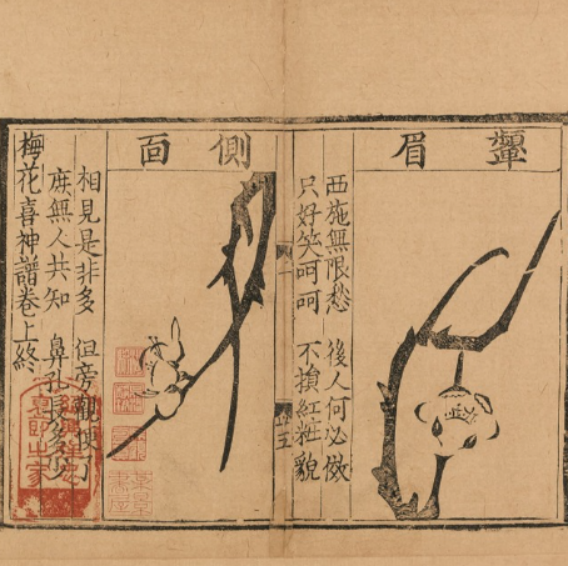 顰眉
西施無限愁　後人何必傚
只好笑呵呵　不損紅粧貌
側面
相見是非多　但旁觀便了
庶無人共知　鼻孔没多少
梅花喜神譜卷上終